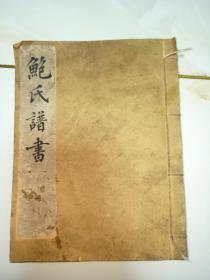 鮑氏譜書